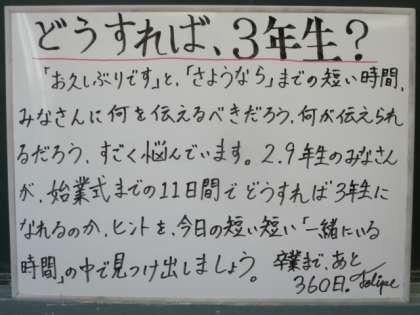 どうすれば、3年生？
「お久しぶりです」と、「さようなら」までの短い時間、
みなさんに何を伝えるべきだろう、何が伝えられ
るだろう、すごく悩んでいます。2.9年生のみなさん
が、始業式までの11日間でどうすれば3年生に
なれるのか、ヒントを、今日の短い短い「一緒にいる
時間」の中で見つけ出しましょう。卒業まで、あと
360日。Felipe